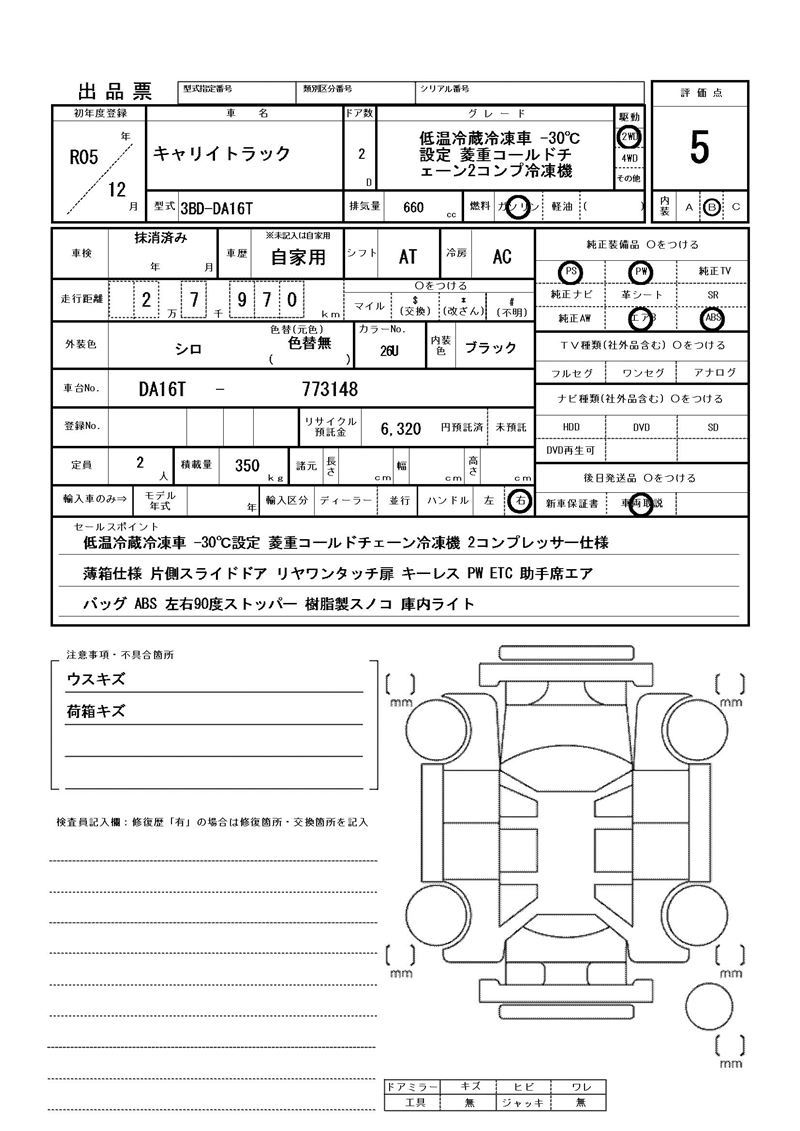 出品票
型式指定番号 類別区分番号 シリアル番号
評価点
5
内装 A B C
初年度登録 車名 ドア数 グレード 駆動
R05 年
12 月
キャリイトラック
2 D
低温冷蔵冷凍車 -30℃
設定 菱重コールドチ
ェーン2コンプ冷凍機
2WD
4WD
その他
型式 3BD-DA16T 排気量 660 cc 燃料 ガソリン 軽油 ( )
車検 抹消済み 年 月 車歴 ※未記入は自家用 自家用 シフト AT 冷房 AC
走行距離 2 万 7 千 9 7 0 km
○をつける
マイル $(交換) *(改ざん) #(不明)
外装色 シロ 色替(元色) 色替無 ( ) カラーNo. 26U 内装色 ブラック
車台No. DA16T - 773148
登録No. リサイクル預託金 6,320 円預託済 未預託
定員 2 人 積載量 350 kg 諸元 長さ cm 幅 cm 高さ cm
輸入車のみ⇒ モデル年式 年 輸入区分 ディーラー 並行 ハンドル 左 右
純正装備品 ○をつける
PS PW 純正TV
純正ナビ 革シート SR
純正AW エアB ABS
TV種類(社外品含む) ○をつける
フルセグ ワンセグ アナログ
ナビ種類(社外品含む) ○をつける
HDD DVD SD
DVD再生可
後日発送品 ○をつける
新車保証書 車両取説
セールスポイント
低温冷蔵冷凍車 -30℃設定 菱重コールドチェーン冷凍機 2コンプレッサー仕様
薄箱仕様 片側スライドドア リヤワンタッチ扉 キーレス PW ETC 助手席エア
バッグ ABS 左右90度ストッパー 樹脂製スノコ 庫内ライト
注意事項・不具合箇所
ウスキズ
荷箱キズ
検査員記入欄：修復歴「有」の場合は修復箇所・交換箇所を記入
[ ] mm [ ] mm
[ ] mm [ ] mm
[ ] mm
ドアミラー キズ ヒビ ワレ
工具 無 ジャッキ 無